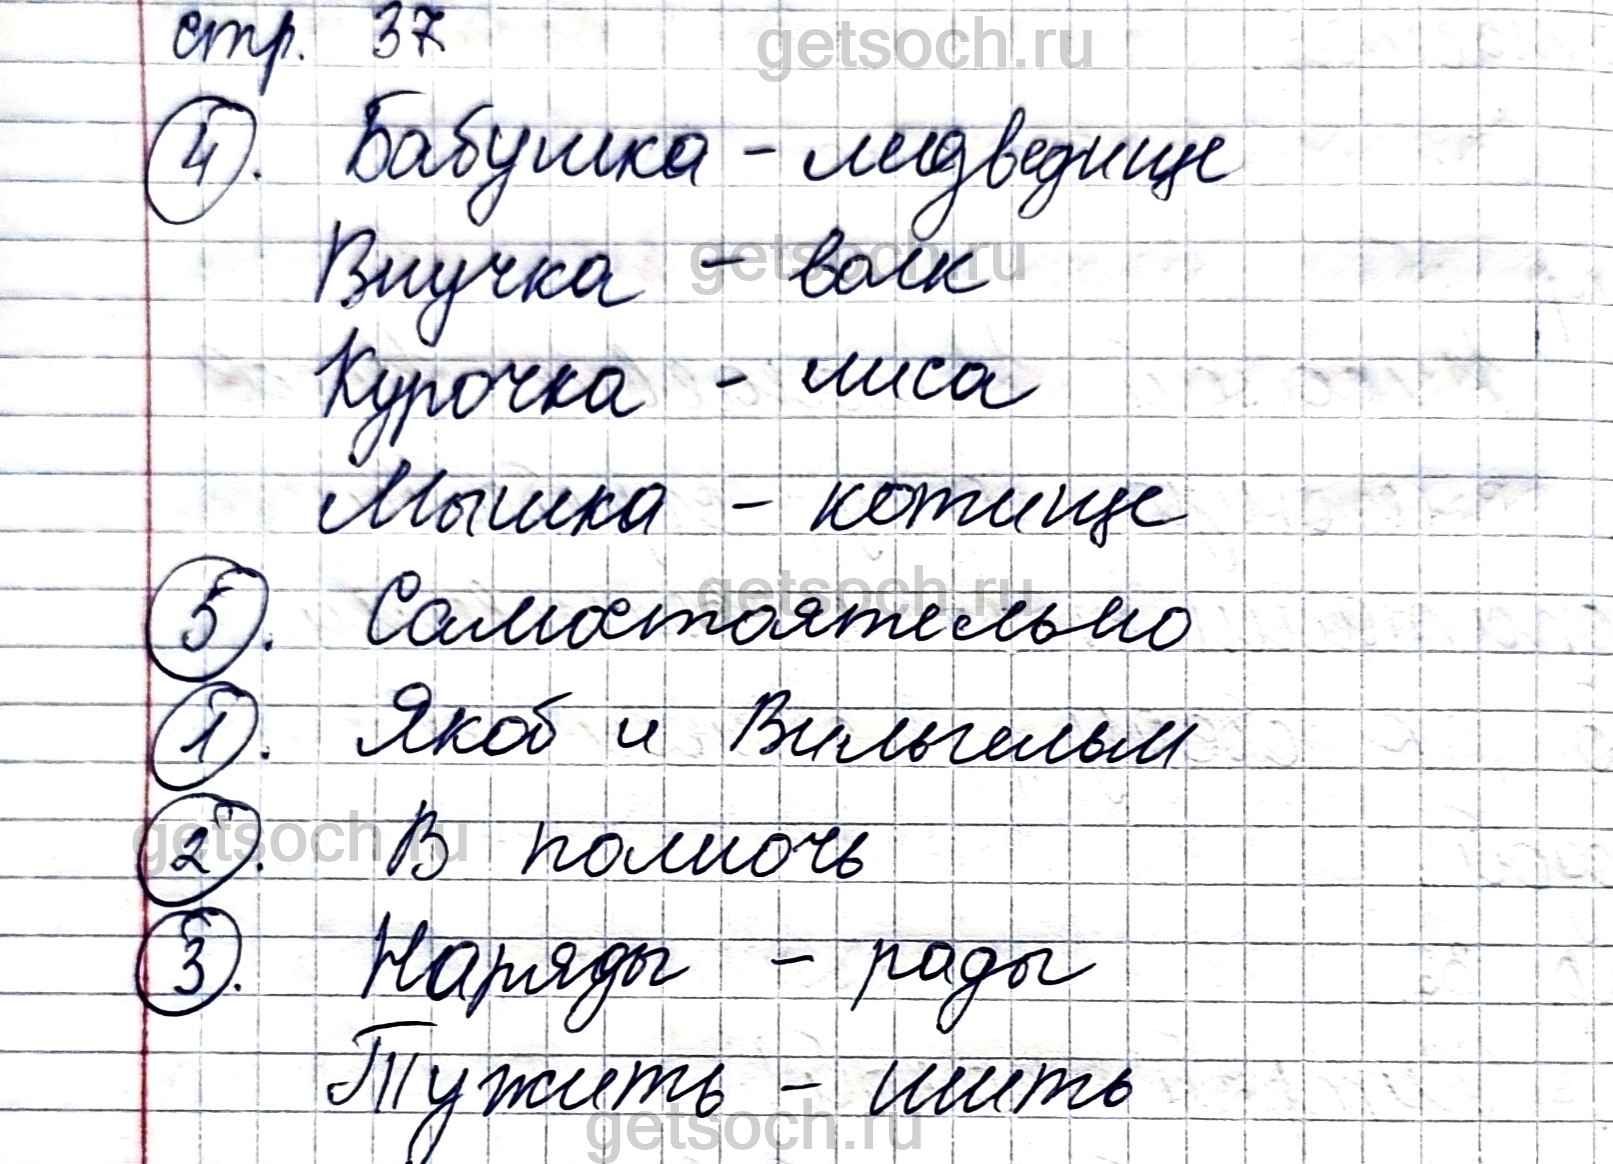 стр. 37
getsoch.ru
4. Бабушка - медведище
Внучка - волк
getsoch.ru
Курочка - лиса
Мышка - котище
getsoch.ru
5. Самостоятельно
1. Якоб и Вильгельм
2. В полночь
getsoch.ru
3. Наряды - рады
Тужить - шить
getsoch.ru